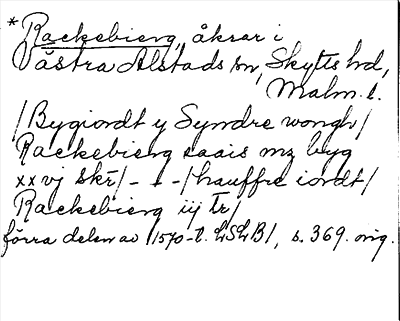 *Rackebierg, åkrar i
Västra Alstads sn, Skytts hd,
Malm. l.
/Bygiordt y Syndre wongh/
Rackebierg saais mz byg
xx vj skr/ - - -/hauffre iordt/
Rackebierg iij tr/
förra delen av 1570-t. LSLB/, s. 369. orig.